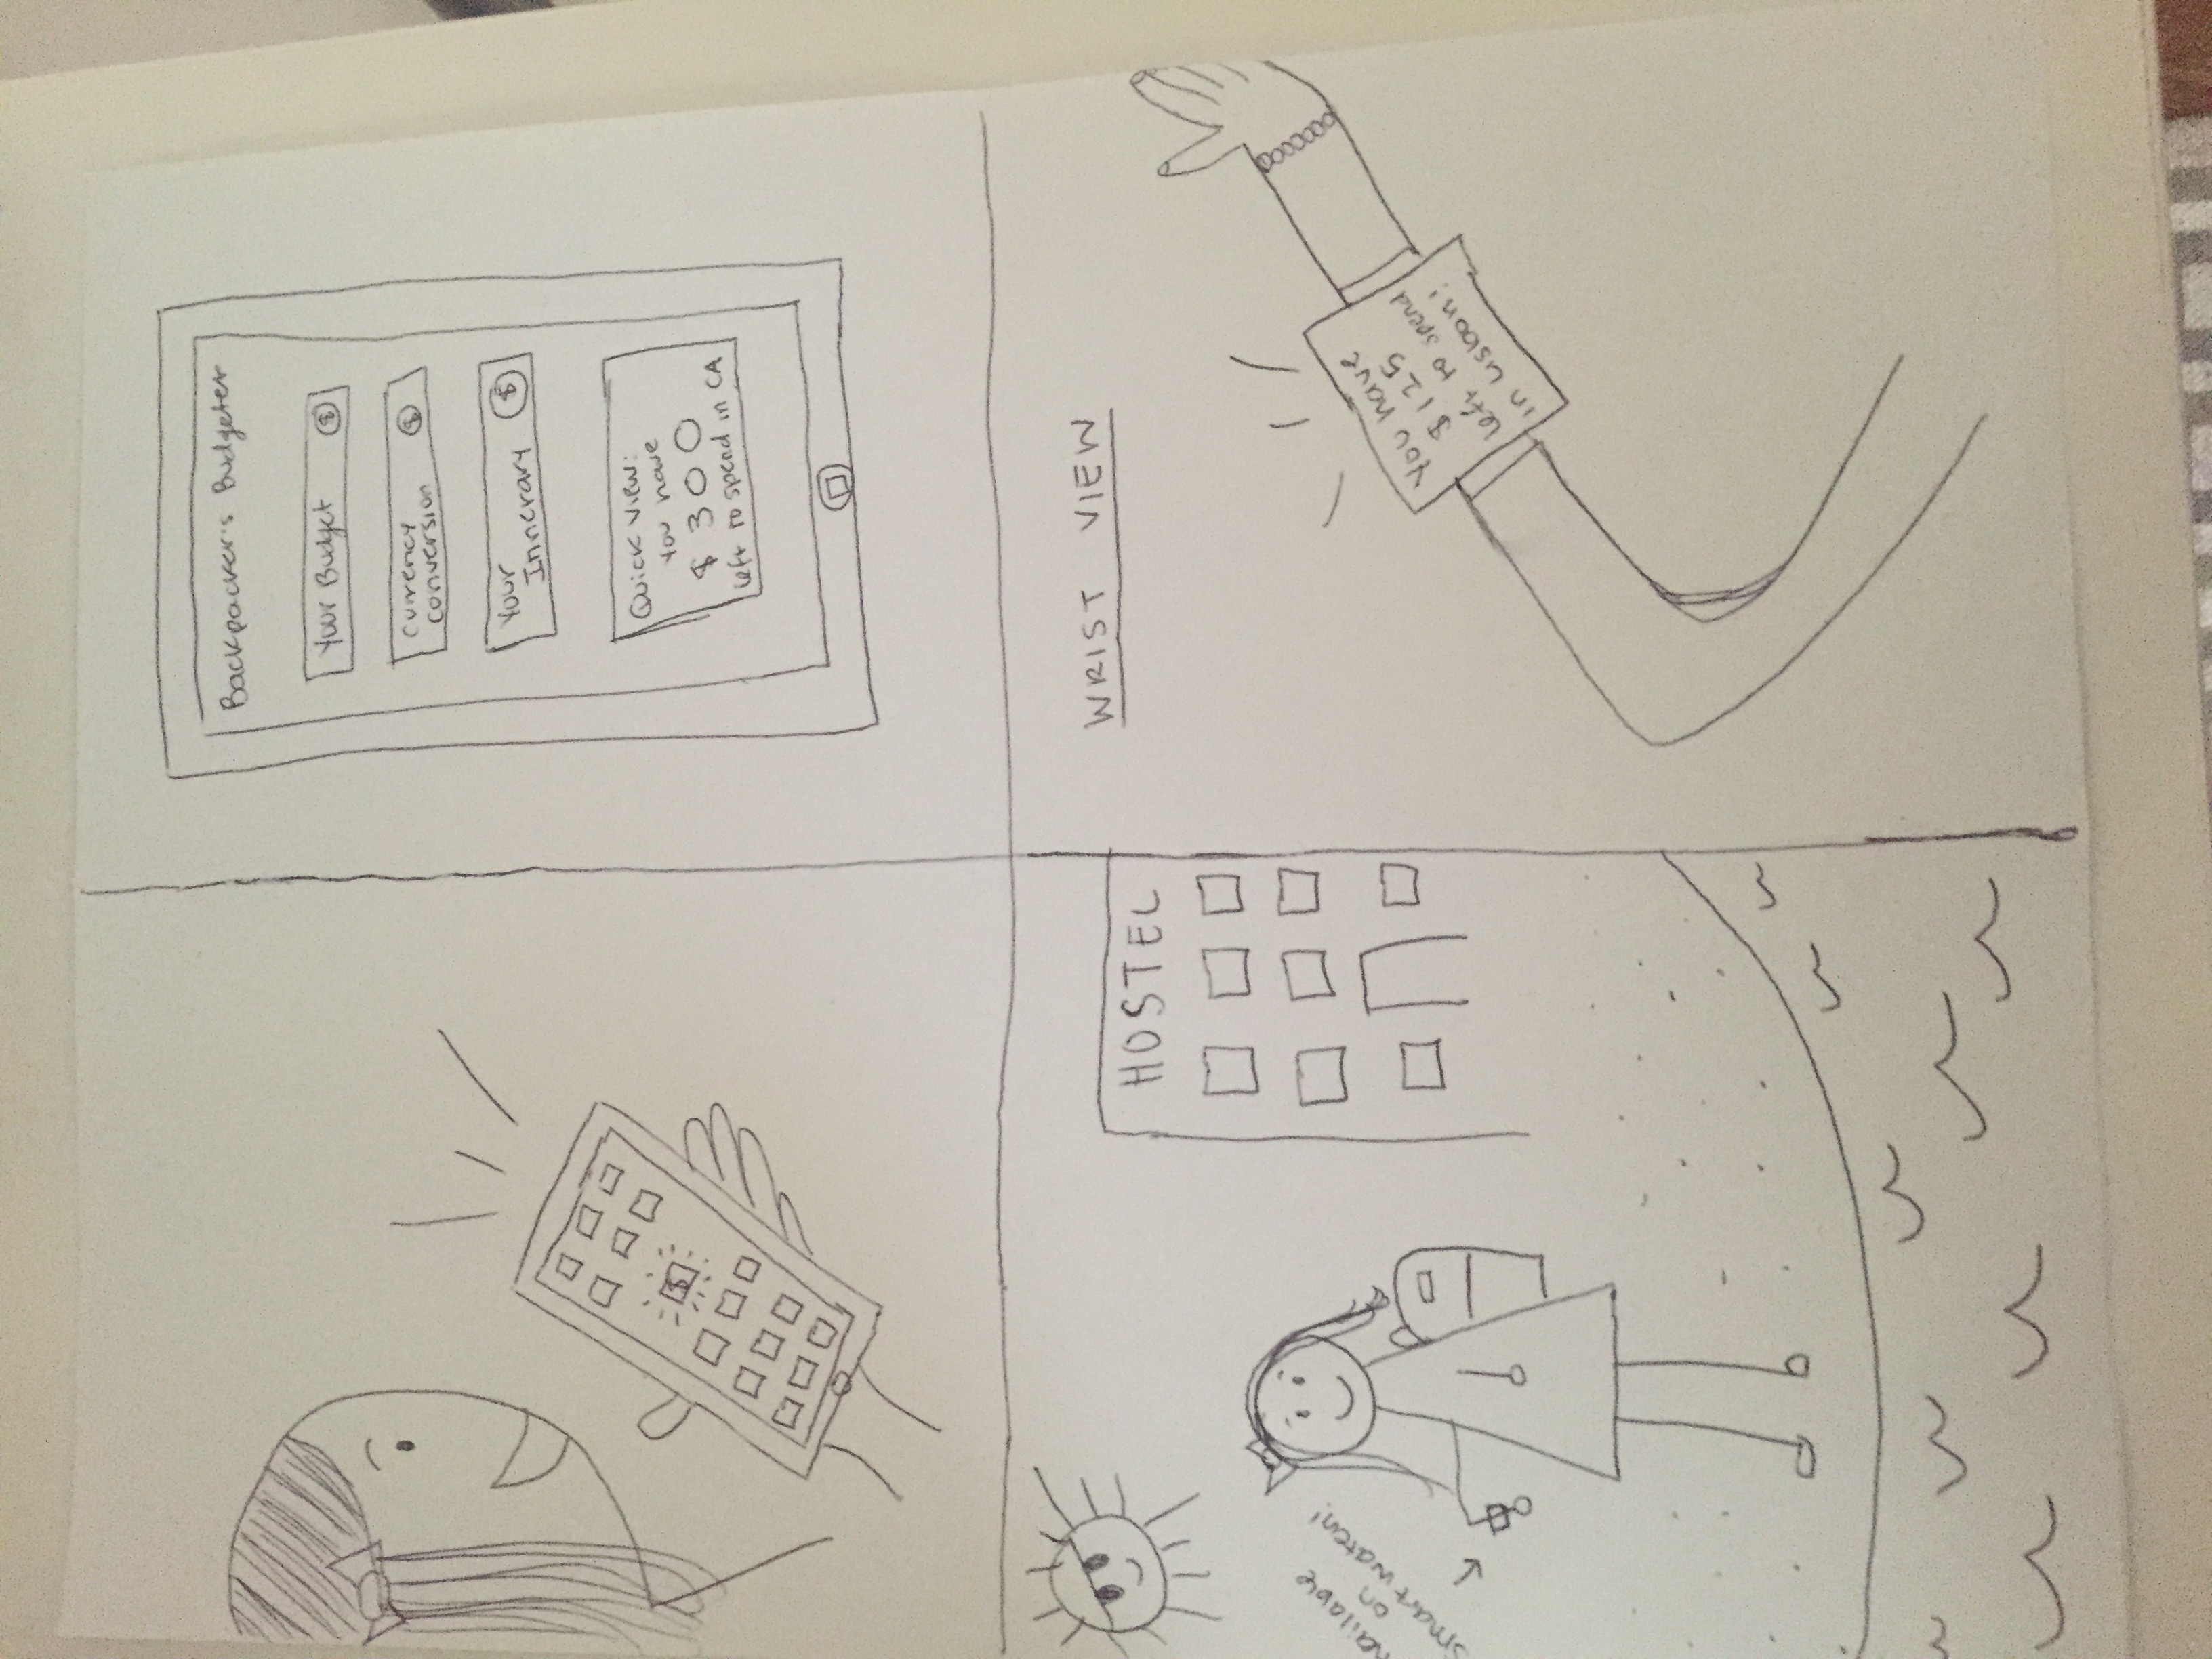 $
Backpacker's Budgeter
Your Budget $
Currency $
conversion
Your $
Innerary
Quick View:
You have
$ 300
left to spend in CA
HOSTEL
on
smart watch!
WRIST VIEW
You have
$125
left to spend
in Lisbon!